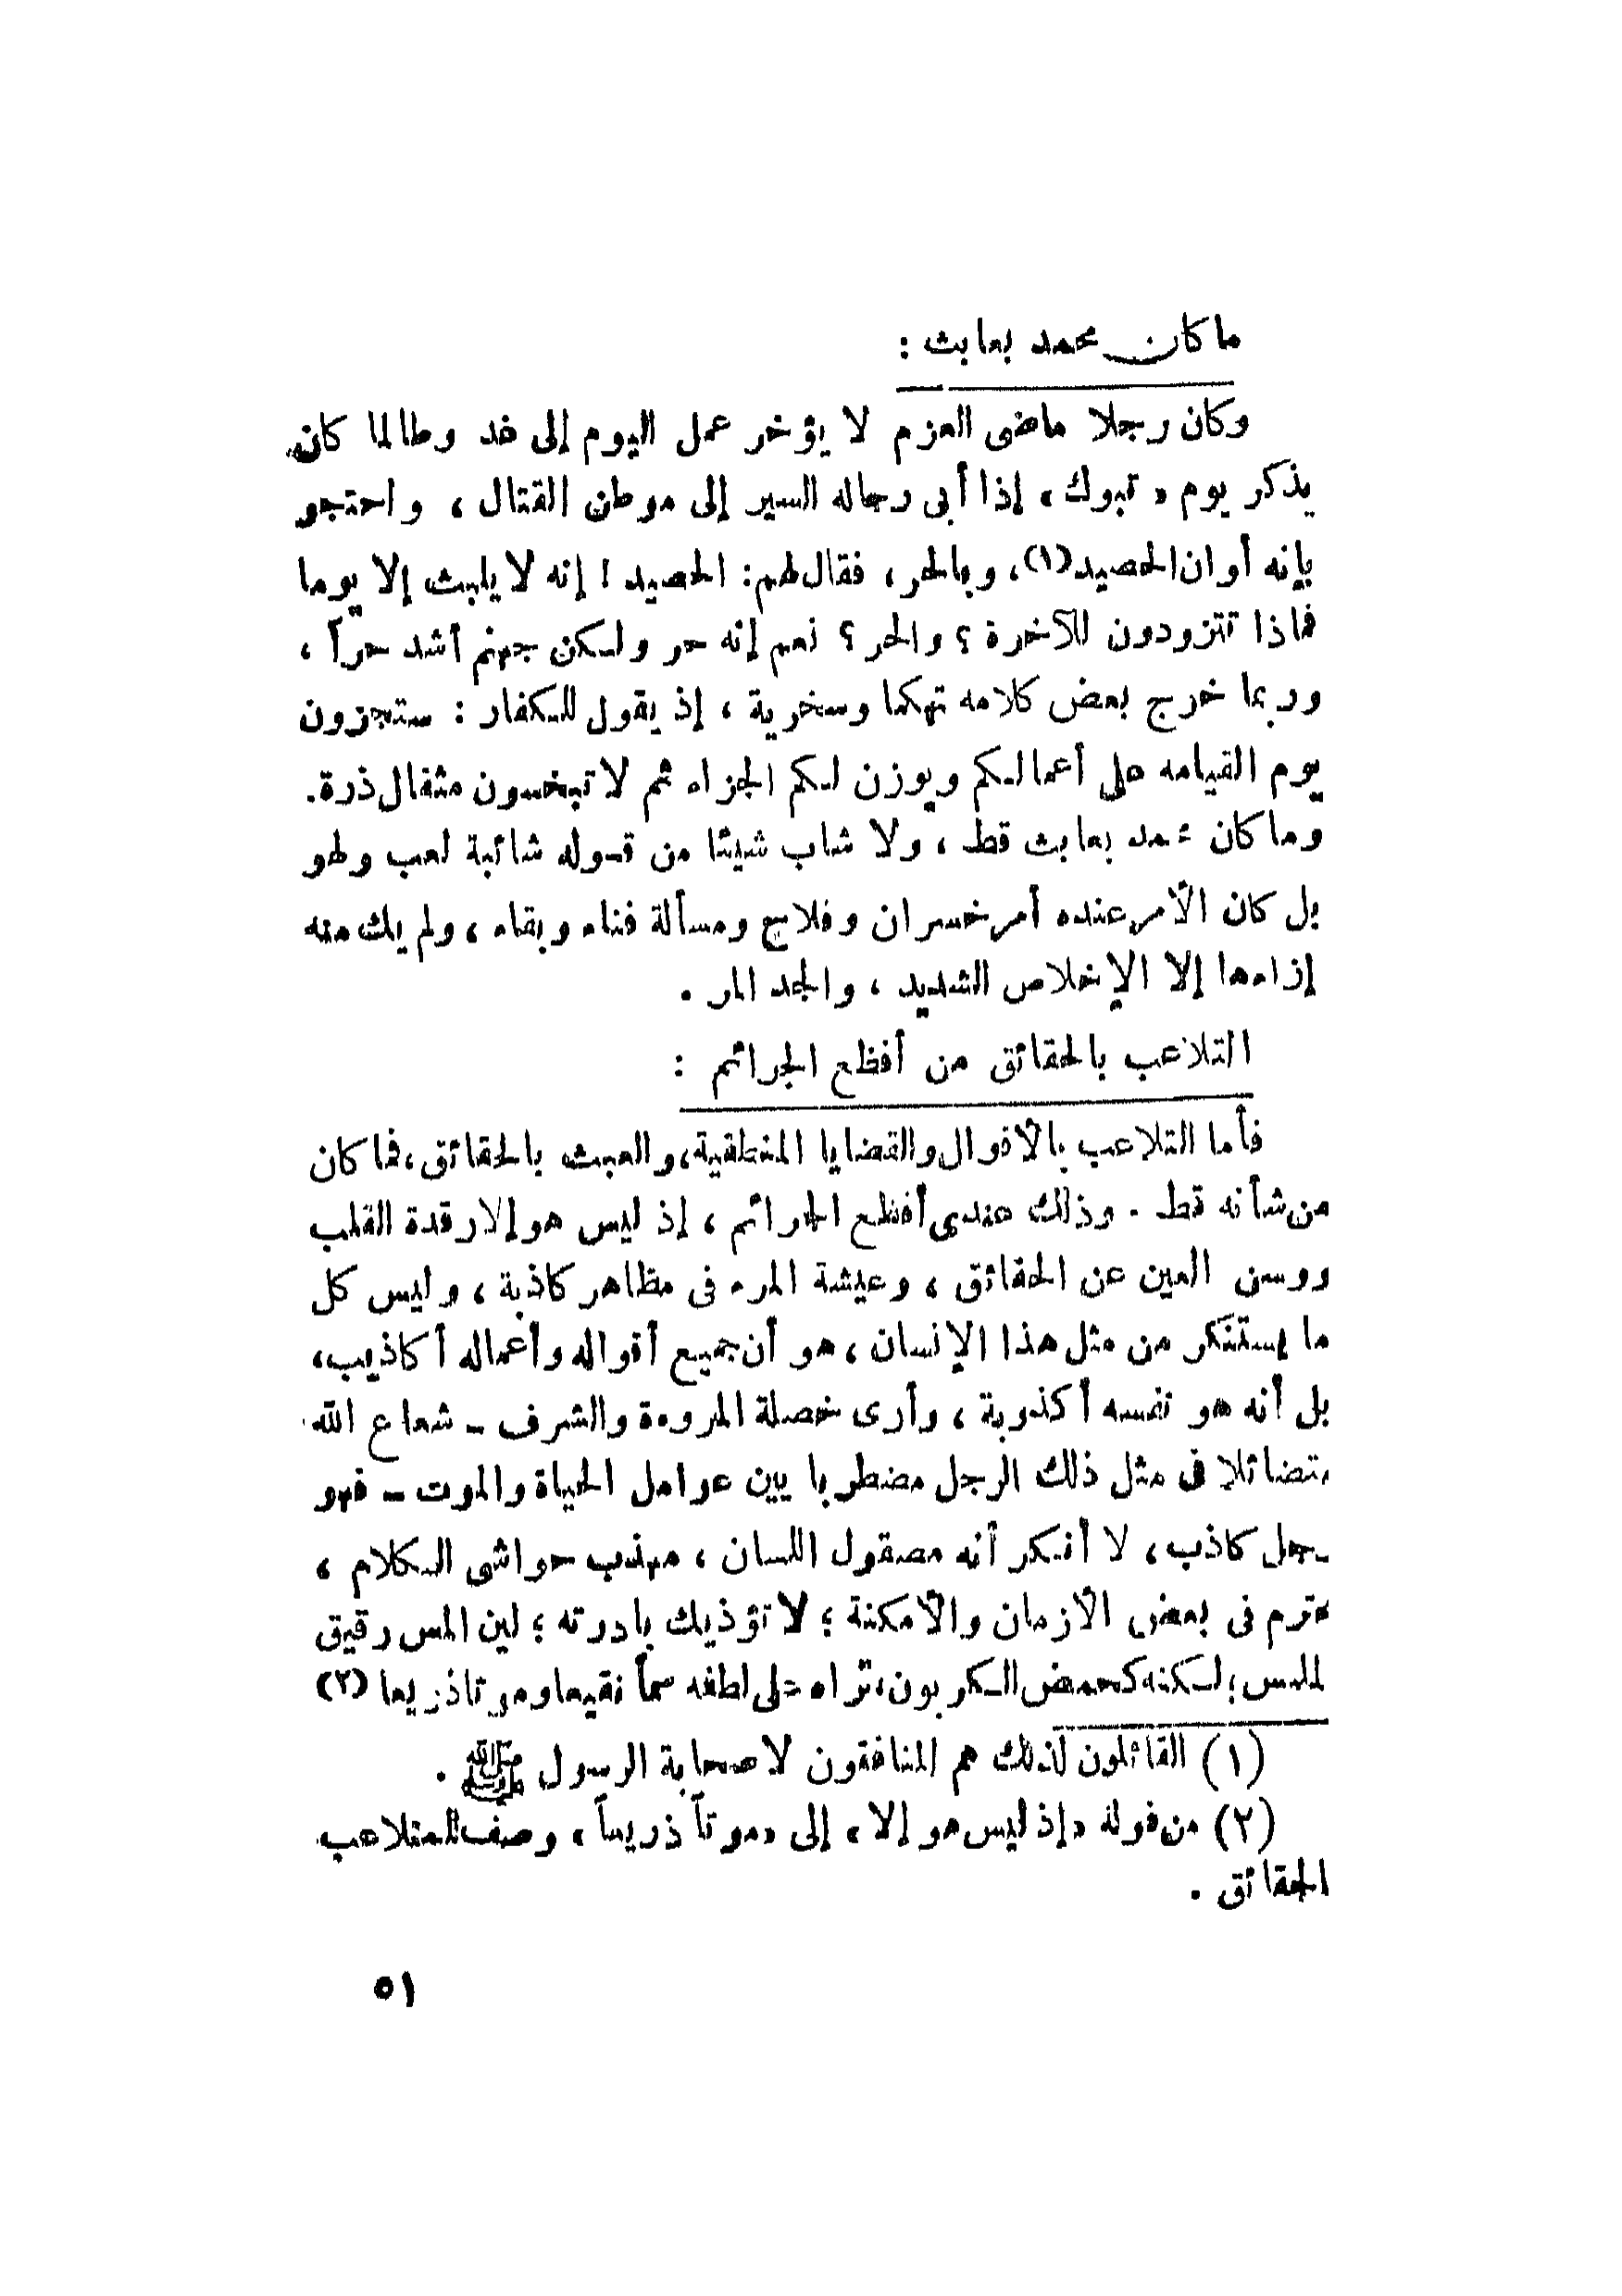 ما كان محمد بعابث :
وكان رجلا ماضى العزم لا يؤخر عمل اليوم إلى غد وطالما كان
يذكر يوم « تبوك » إذا أبى رجاله السير إلى موطن القتال ، واحتجو
بإنه أوان الحصيد (١) ، وبالحر ، فقال لهم : الحصيد ! إنه لا يلبث إلا يوما
فماذا تتزودون للآخرة ؟ والحر ؟ نعم إنه حر ولكن جهنم أشد حراً ،
وربما خرج بعض كلامه تهكما وسخرية ، إذ يقول للكفار : ستجزون
يوم القيامه على أعمالكم ويوزن لكم الجزاء ثم لا تبخسون مثقال ذرة .
وما كان محمد بعابث قط ، ولا شاب شيئا من قوله شائبة لعب ولهو
بل كان الأمر عنده أمر خسران وفلاح ومسألة فناء وبقاء ، ولم يك منه
إزاءها إلا الإخلاص الشديد ، والجد المر .
التلاعب بالحقائق من أفظع الجرائم :
فأما التلاعب بالأقوال والقضايا المنطقية ، والعبث بالحقائق ، فما كان
من شأنه قط . وذلك عندى أفظع الجرائم ، إذ ليس هو إلا رقدة القلب
ووسن العين عن الحقائق ، وعيشة المرء فى مظاهر كاذبة ، وليس كل
ما يستنكر من مثل هذا الإنسان ، هو أن جميع أقواله وأعماله أكاذيب ،
بل أنه هو نفسه أكذوبة ، وأرى خصلة المروءة والشرف - شعاع الله
متضائلا فى مثل ذلك الرجل مضطربا بين عوامل الحياة والموت - فهو
رجل كاذب ، لا أنكر أنه مصقول اللسان ، مهذب حواشى الكلام ،
محترم فى بعض الأزمان والأمكنة ؛ لا تؤذيك بادرته ؛ لين المس رقيق
الملمس ؛ لكنه كحمض الكربون ، تراه على لطفه سماً نقيعا وموتا ذريعا (٢)
(١) القائلون لذلك هم المنافقون لا صحابة الرسول ﷺ .
(٢) من قوله « إذ ليس هو إلا » إلى « موتاً ذريعاً » وصف للمتلاعب
الحقائق .
٥١